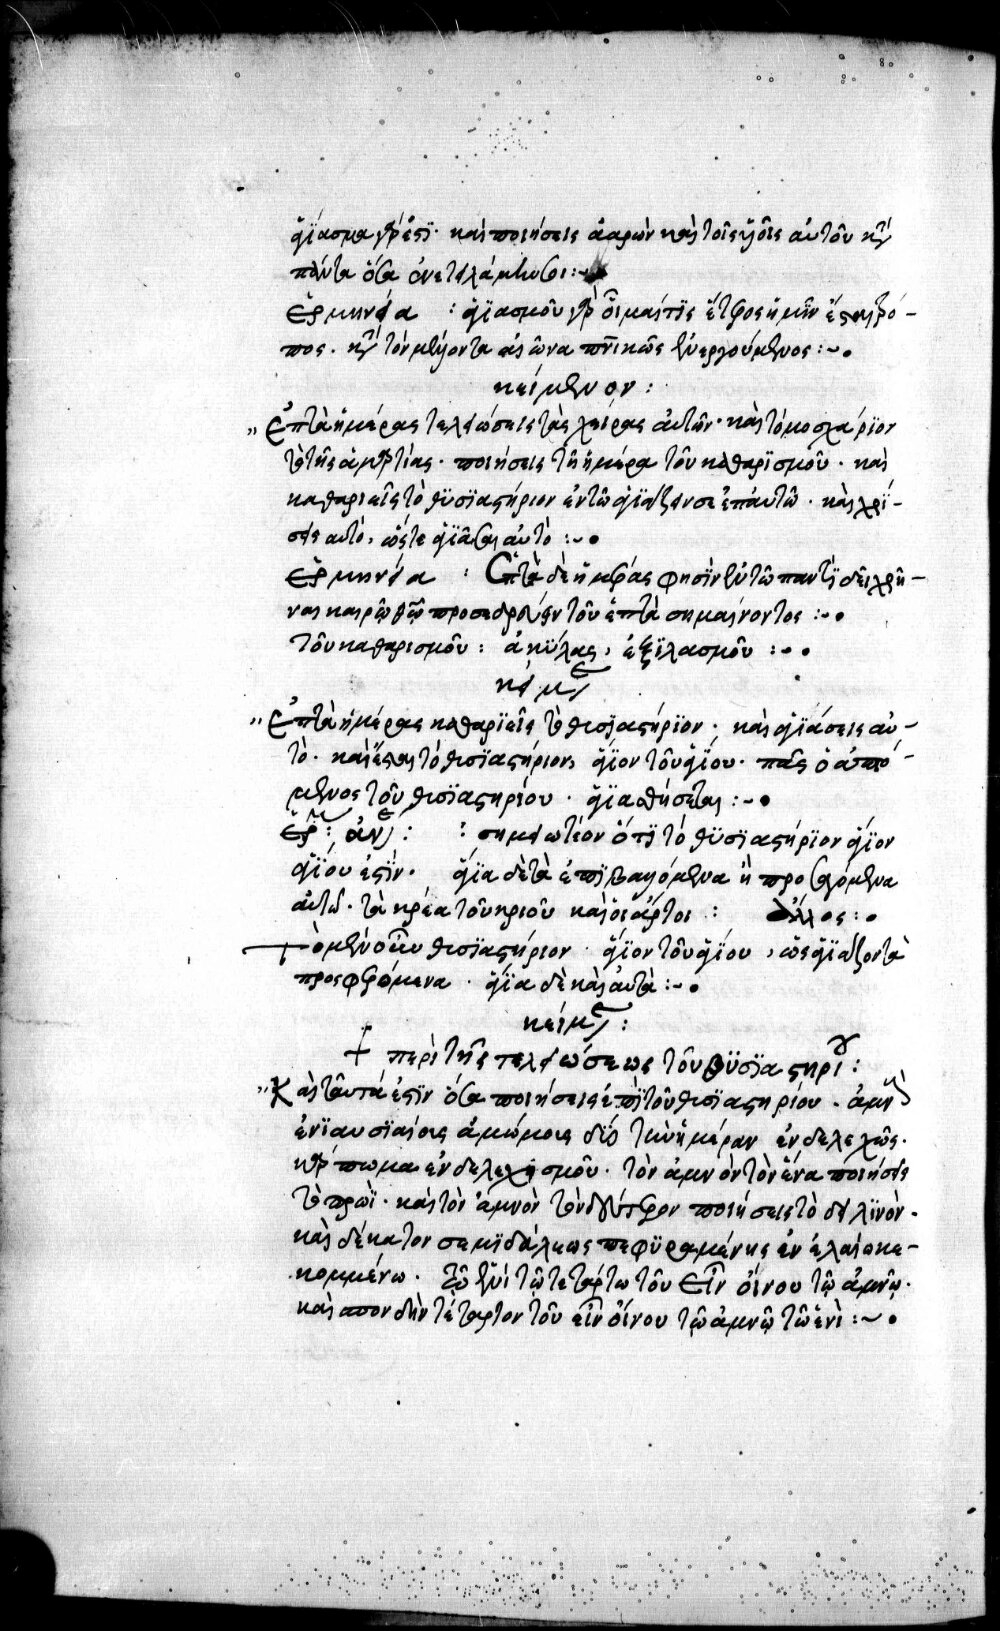 ἁγίασμα γάρ ἐστι· καὶ ποιήσεις ἀαρὼν καὶ τοῖς υἱοῖς αὐτοῦ κατὰ
πάντα ὅσα ἐνετειλάμην σοι :~
ἑρμηνεία : ἁγιασμοῦ γὰρ
πος. καὶ τὸν μέλλοντα αἰῶνα πνικῶς ἐνεργούμενος :~
κείμενον :
„ Ἑπτὰ ἡμέρας τελειώσεις τὰς χεῖρας αὐτῶν· καὶ τὸ μοσχάριον
τὸ τῆς ἁμαρτίας· ποιήσεις τῇ ἡμέρα τοῦ καθαρισμοῦ· καὶ
καθαριεῖς τὸ θυσιαστήριον ἐν τῶ ἁγιάζειν σε ἐπ' αὐτῶ· καὶ χρί-
σεις αὐτὸ, ὥστε ἁγιᾶσαι αὐτὸ :~
ἑρμηνεία : Ἑπτὰ δὲ ἡμέρας φησὶν ἐν τῶ παντὶ δεῖ χρῆ-
ναι καιρῶ προσεδρεύειν τοῦ ἑπτὰ σημαίνοντος :~
τοῦ καθαρισμοῦ : ἀκύλας, ἐξιλασμοῦ :~
κείμε
„ Ἑπτὰ ἡμέρας καθαριεῖς τὸ θυσιαστήριον· καὶ ἁγιάσεις αὐ-
τὸ· καὶ ἔσται τὸ θυσιαστήριον, ἅγιον τοῦ ἁγίου· πᾶς ὁ ἁπτό-
μενος τοῦ θυσιαστηρίου· ἁγιασθήσεται :~
ἑρμ : : σημειωτέον ὅτι τὸ θυσιαστήριον ἅγιον
ἁγίου ἐστίν· ἅγια δὲ τὰ ἐπιβαλλόμενα ἢ προσαγόμενα
αὐτῶ· τὰ κρέα τοῦ κριοῦ καὶ οἱ ἄρτοι : ἄλλος :
τὸ μὲν οὖν θυσιαστήριον· ἅγιον τοῦ ἁγίου, ὡς ἁγιάζον τὰ
προσφερόμενα· ἅγια δὲ καὶ αὐτὰ :~
κείμε :
+ περὶ τῆς τελειώσεως τοῦ θυσιαστηρίου :
„ Καὶ ταῦτά ἐστιν ὅσα ποιήσεις ἐπὶ τοῦ θυσιαστηρίου· ἀμνοὺς
ἐνιαυσιαίους ἀμώμους δύο τὴν ἡμέραν ἐνδελεχῶς·
κάρπωμα ἐνδελεχισμοῦ· τὸν ἀμνὸν τὸν ἕνα ποιήσεις
τὸ πρωὶ· καὶ τὸν ἀμνὸν τὸν δεύτερον ποιήσεις τὸ δειλινὸν·
καὶ δέκατον σεμιδάλεως πεφυραμένης ἐν ἐλαίω κε-
κομμένω· τῶ τετάρτω τοῦ εἲν οἴνου τῶ ἀμνῶ·
καὶ σπονδὴν τέταρτον τοῦ εἲν οἴνου τῶ ἀμνῶ τῶ ἑνὶ :~